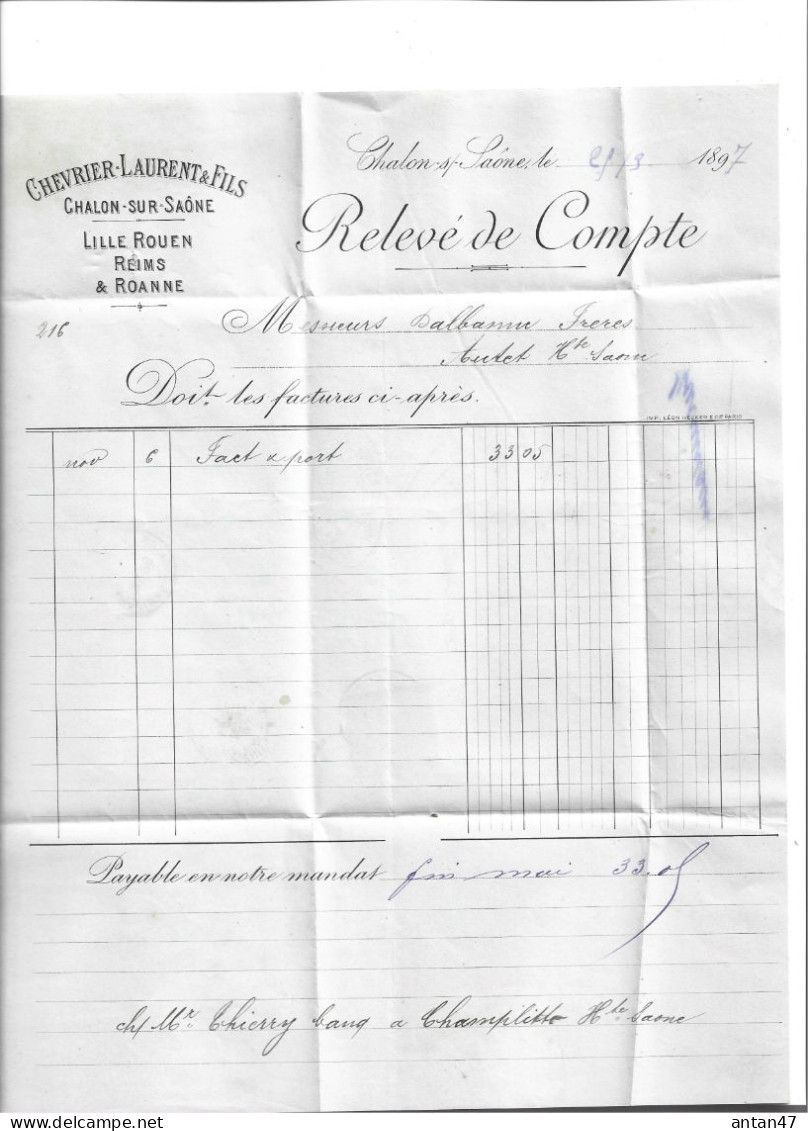 CHEVRIER-LAURENT & FILS
CHALON-SUR-SAÔNE
LILLE ROUEN
REIMS
& ROANNE
Chalon-s/-Saône, le 25/3 1897
Relevé de Compte
216
Messieurs Dalbanne Freres
Autet Hte Saone
Doit les factures ci-après.
IMP. LÉON PARIS
nov 6 Fact & port 33 05
Payable en notre mandat fin mai 33.05
ch/ Mr Thierry banq a Champlitte Hte Saone
antan47